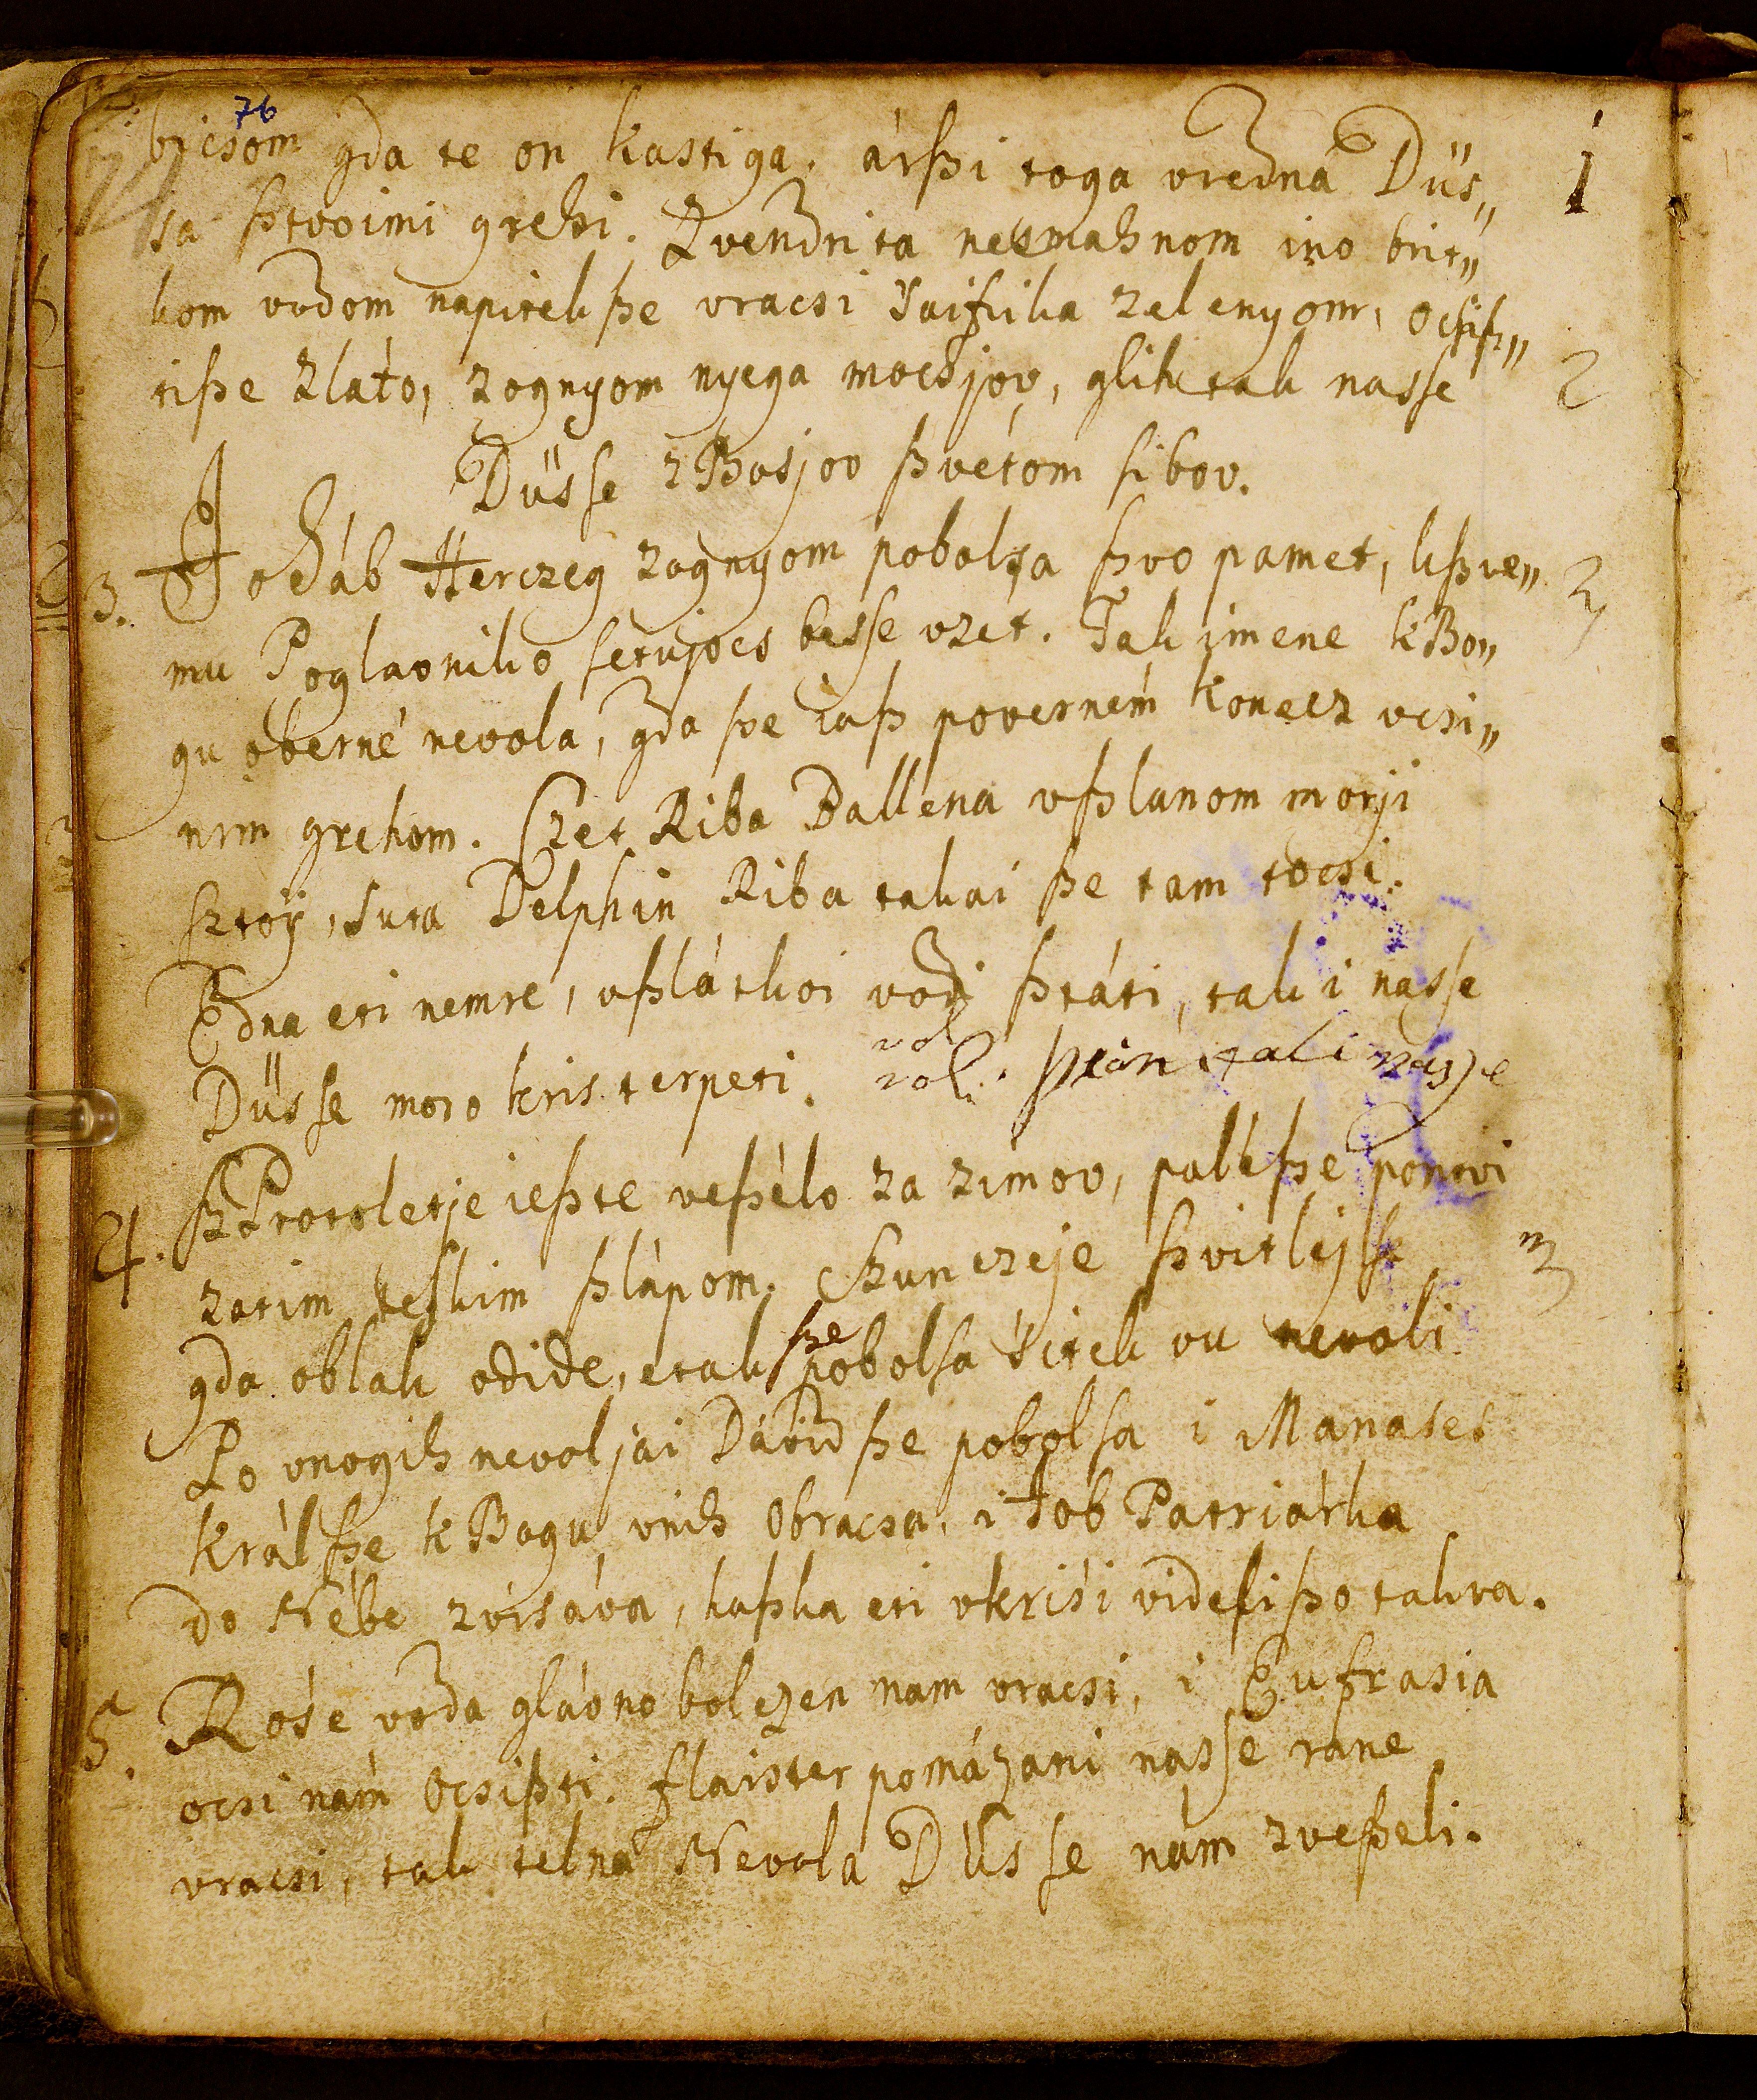 76
bicsom gda te on kastiga. árßi toga vredna Düs„
sa ßtvoimi grehi. Zvendrita nesmahnom ino brit„
kom vodom napitek ße vracsi Saifika zelenyom, ocsiß„
tiße zlato, zognyom nyega mocsjov, glih tak nasse
Düsse z Bosjov ßvétom sibov.
1
2
3. Joháb Herczeg zognyom pobolsa ßvo pamet, kßve„
mu Poglavniko setujocs besse vzét. Tak imene k Bo„
gu oberné nevola, gda ße iaß poverném konecz vcsi„
nim grehom. Czet Riba Ballena vßlanom morji
sztoji, suta Delphin Riba takai ße tam tocsi.
Edna eti nemre, vßlátkoi vodi ßtáti, tak i nasse
Düsse moro kris terpeti. vol. ßtán tak i nasse
4. ßProtoletje ießte veßélo za zimov, pali ße ponovi
zatim teskim ßlápom. Szunczeje ßvitlejse
3
gda oblak odide, etak ße pobolsa sitek vu nevoli
Po vnogih nevoljai Dávid ße pobolsa i Manases
Král ße k Bogu vnih obracsa, i Jób Patriárka
do Nébe zvisáva, kaßka eti vkrisi videli ßo takva.
5. Rosé voda glávno bolezen nam vracsi, i Eufrasia
ocsi nám ocsißti. flaister pomázani nasse rane
vracsi, tak telna Nevola Düsse nám zveßeli.